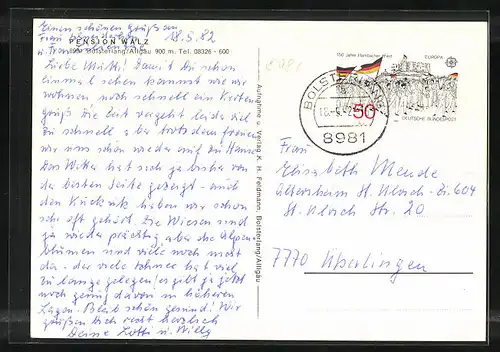 Einen schönen Gruß an
Frau
18.5.82
u. Frau
PENSION WALZ
8981 Bolsterlang/Allgäu 900 m. Tel. 08326 - 600
Liebe Mutti! Damit Du schon
einmal sehen kannst wie wir
wohnen noch schnell ein Karten-
gruß. Die Zeit vergeht leider viel
zu schnell, aber trotzdem freuen
wir uns schon wieder auf zu Hause.
Das Wetter hat sich ja bisher von
der besten Seite gezeigt - und
den Kuckuck haben wir schon
sehr oft gehört. Die Wiesen sind
ja wieder prächtig aber die Alpen-
blumen sind viele noch nicht
da - der viele Schnee hat viel
zu lange gelegen, es gibt ja jetzt
noch genug davon in höheren
Lagen. Bleib schön gesund! Wir
grüßen Dich recht herzlich
Deine Lotti u. Willy
Aufnahme u. Verlag K. H. Feldmann, Bolsterlang/Allgäu
150 Jahre Hambacher Fest
EUROPA
50
DEUTSCHE BUNDESPOST
BOLSTERLANG
8981
Frau
Elisabeth Mende
Altersheim St. Ulrich - Zi. 604
St. Ulrich Str. 20
7770 Überlingen